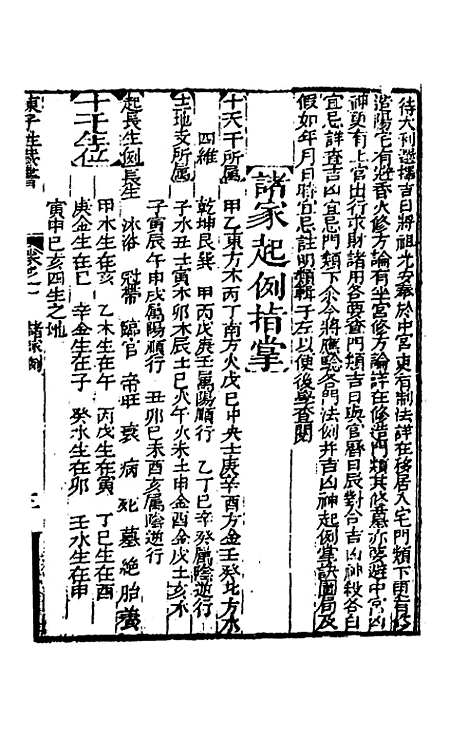 待大利選擇吉日將祖先安奉於中宮更有制法詳在移居入宅門類下更有
陽宅有迎香火修方論有坐宮修方論詳在修造門類其修墓亦要避中宮凶
神更有上官出行求財諸用各要查門類吉日與官曆日辰對合吉凶神殺各自
宜忌詳查吉凶宜忌門類下余今將應驗各門法例并吉凶神起例掌訣圖局及
假如年月日時宜忌註明類輯于左以便後學查閱
諸家起例指掌
十天干所屬 甲乙東方木丙丁南方火戊己中央土庚辛酉方金壬癸北方水
四維 乾坤艮巽 甲丙戊庚壬屬陽順行 乙丁己辛癸屬陰逆行
十二地支所屬 子水丑土寅木卯木辰土巳火午火未土申金酉金戌土亥水
子寅辰午申戌屬陽順行 丑卯巳未酉亥屬陰逆行
起長生例 長生 沐浴 冠帶 臨官 帝旺 衰 病 死 墓 絕 胎 養
十干生位 甲木生在亥 乙木生在午 丙戊生在寅 丁巳生在酉
庚金生在巳 辛金生在子 癸水生在卯 壬水生在申
寅申巳亥四生之地
卷之一 諸家例